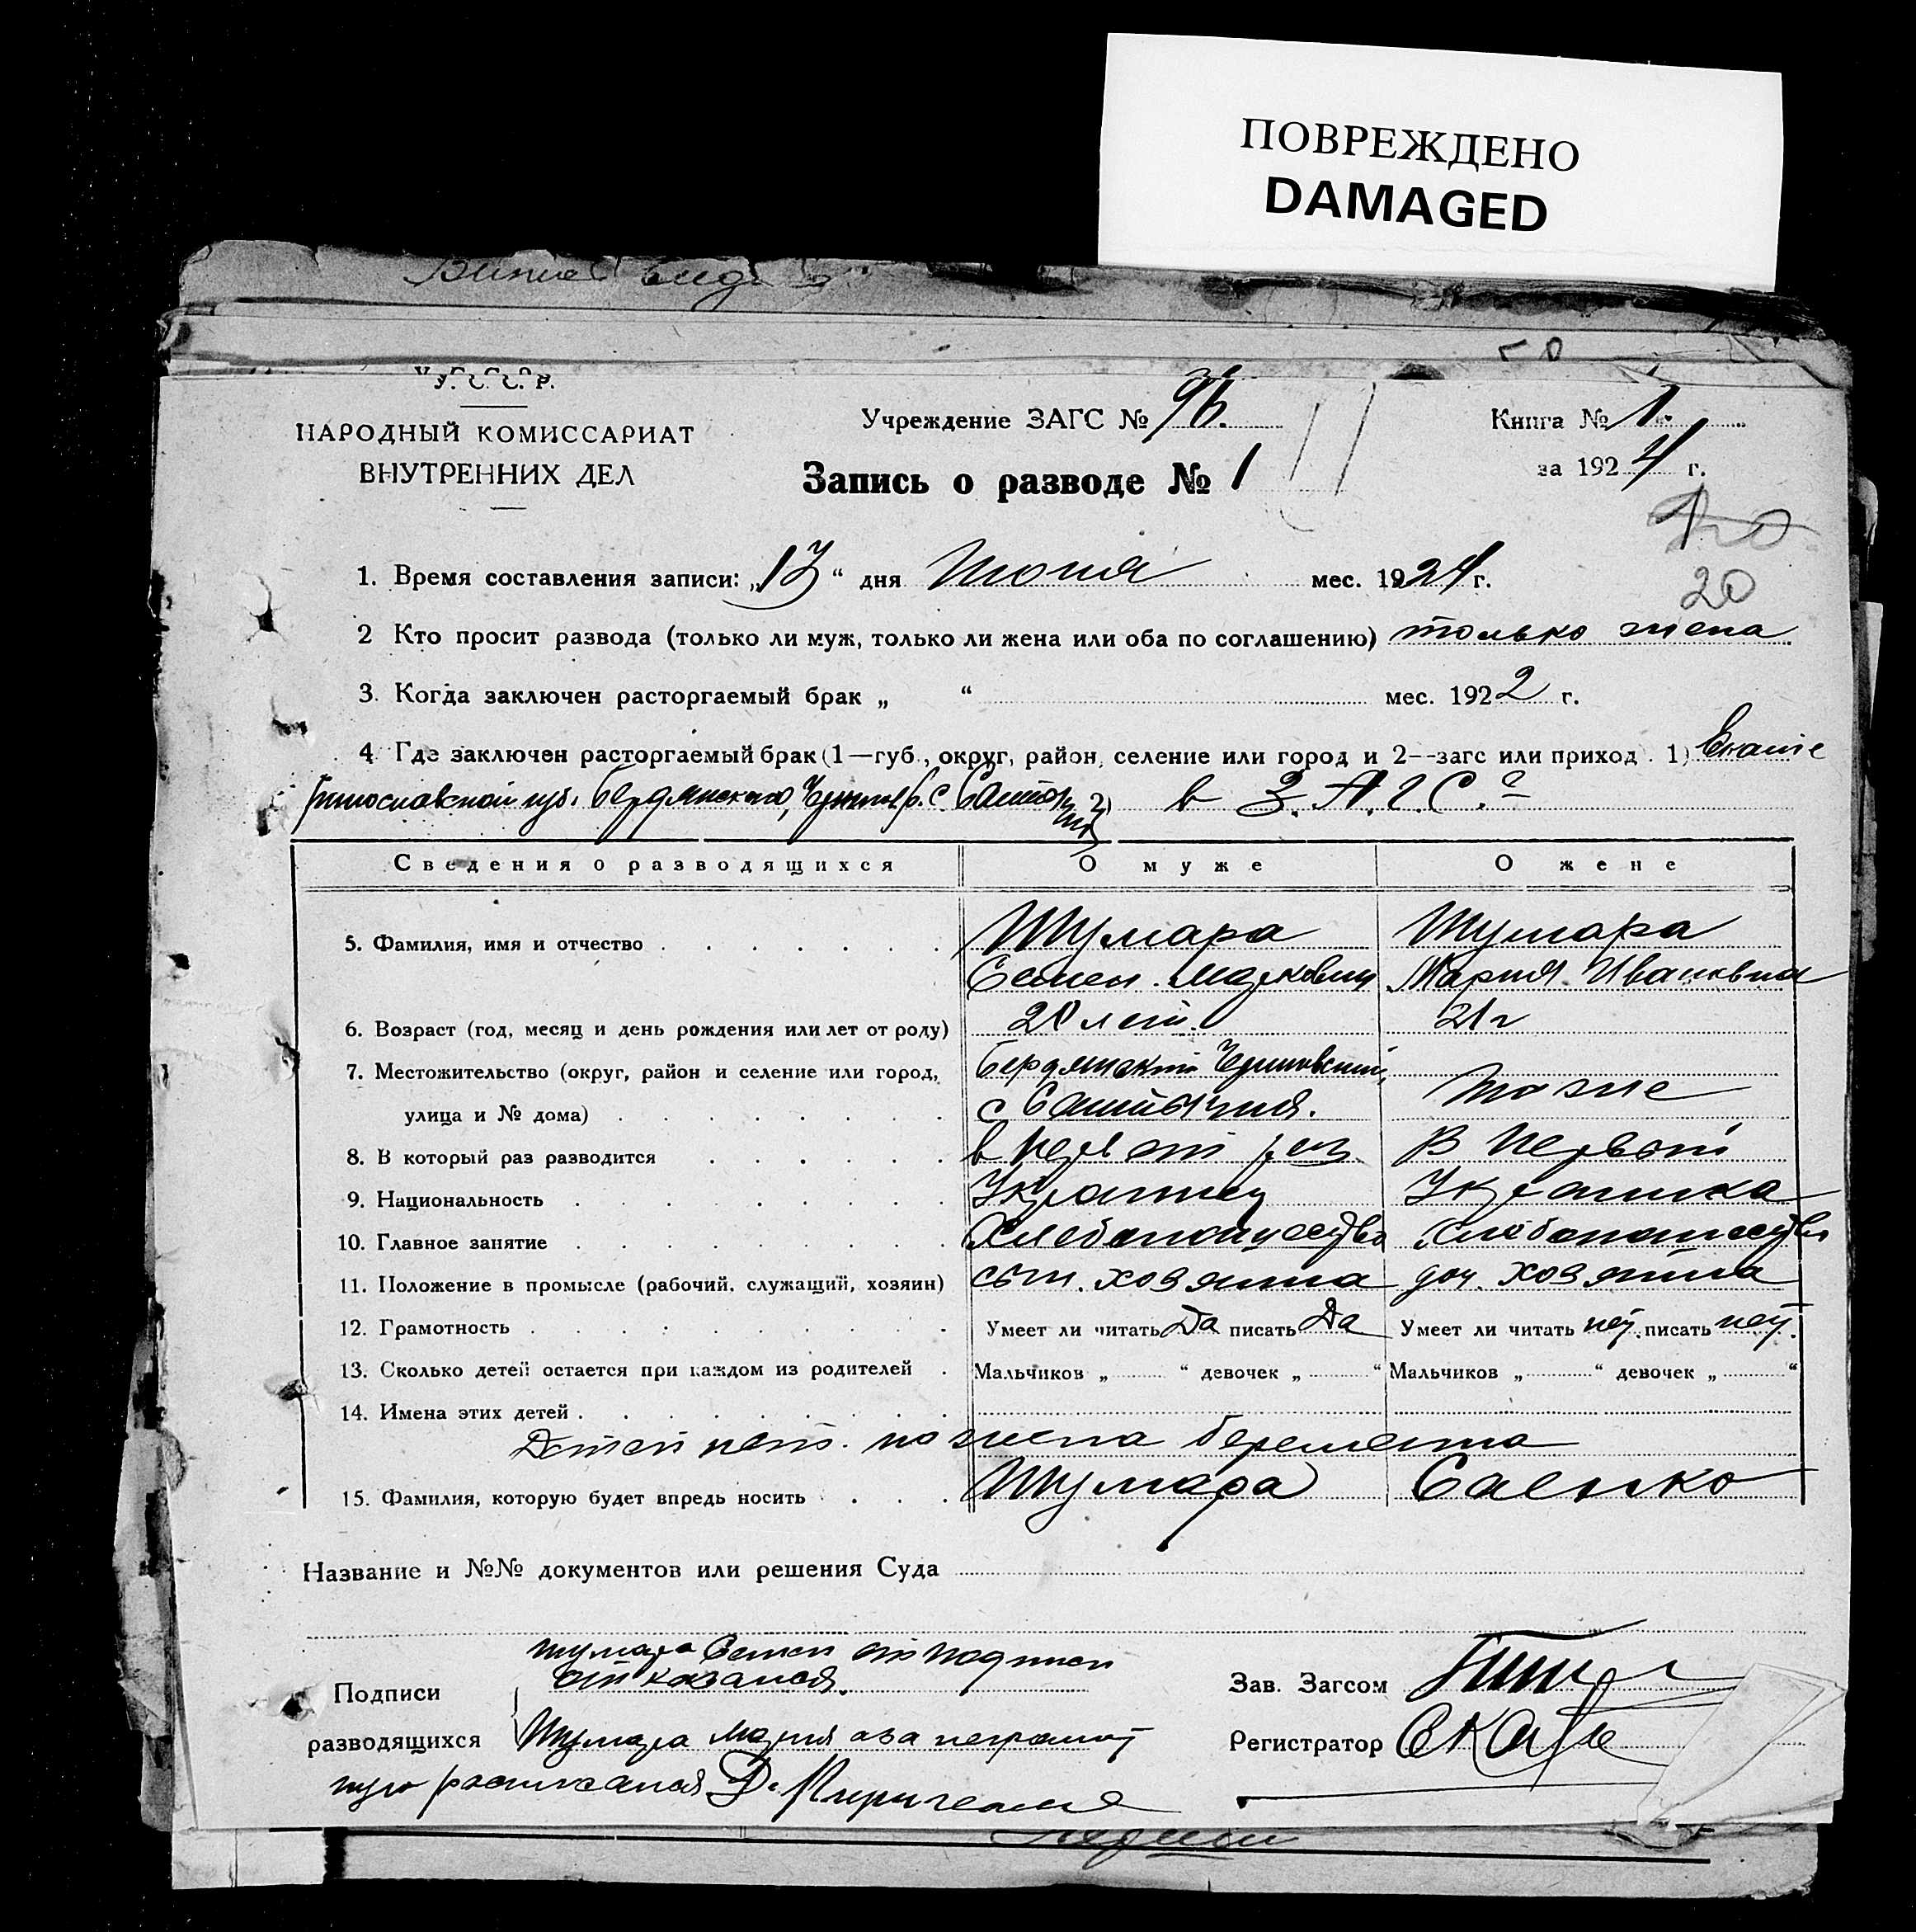 ПОВРЕЖДЕНО
DAMAGED
У. С. С. Р.
НАРОДНЫЙ КОМИССАРИАТ
ВНУТРЕННИХ ДЕЛ
Учреждение ЗАГС №
Книга № 1.
за 1924 г.
Запись о разводе № 1
20
1. Время составления записи: „13“ дня Июня мес. 1924 г.
20
2 Кто просит развода (только ли муж, только ли жена или оба по соглашению) только жена
3. Когда заключен расторгаемый брак „ “ мес. 1922 г.
4. Где заключен расторгаемый брак (1—губ., округ, район, селение или город и 2--загс или приход . 1) Екате
ринославской губ. Бердянского, 2) в З.А.Г.С.е
Сведения о разводящихся О муже О жене
5. Фамилия, имя и отчество Шумара Шумара
Семен Маркович Мария Ивановна
6. Возраст (год, месяц и день рождения или лет от роду) 20 лет. 21 г
7. Местожительство (округ, район и селение или город, Бердянский
улица и № дома) с тоже
8. В который раз разводится в первый раз В первый
9. Национальность Украинец Украинка
10. Главное занятие Хлебопашество хлебопашество
11. Положение в промысле (рабочий, служащий, хозяин) сын. хозяина доч. хозяина
12. Грамотность Умеет ли читать Да писать Да Умеет ли читать нет. писать нет.
13. Сколько детей остается при каждом из родителей Мальчиков „ “ девочек „ “ Мальчиков „ “ девочек „ “
14. Имена этих детей
Детей нет. но жена беремена
15. Фамилия, которую будет впредь носить Шумара Саенко
Название и №№ документов или решения Суда
Шумара Семен от подписи
отказался.
Подписи
разводящихся
Шумара Мария а за неграмот
ную росписался Д.
Зав. Загсом
Регистратор